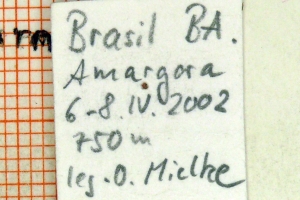 Brasil BA.
Amargora
6-8.IV.2002
750m
leg. O. Mielke